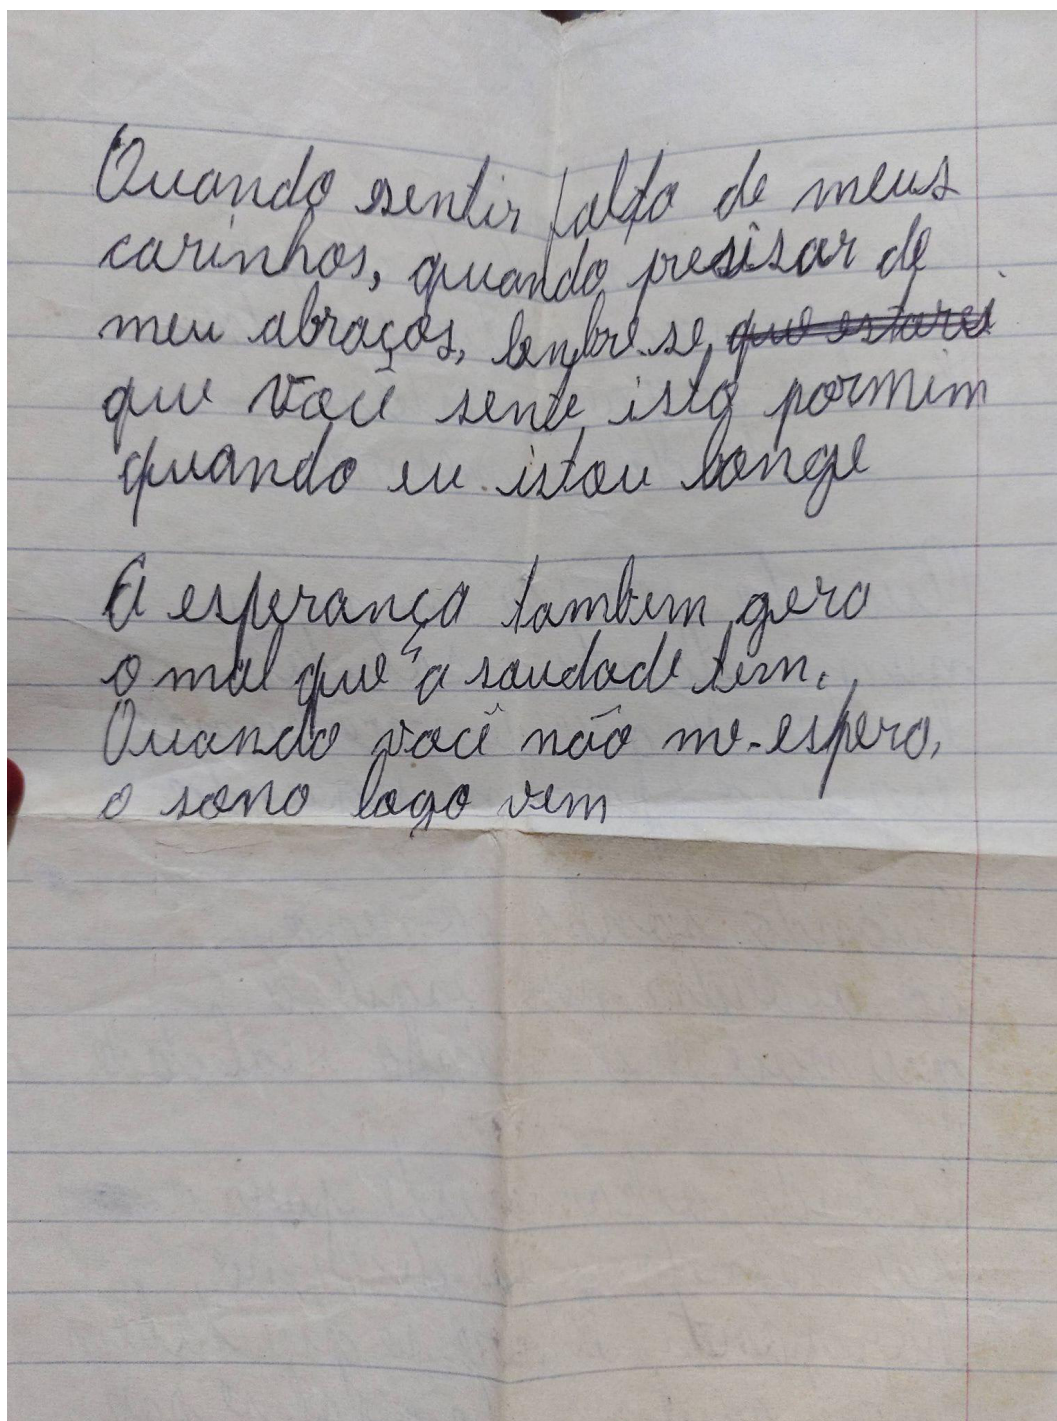 Quando sentir falta de meus
carinhos, quando presisar de
meu abraços, lembre-se, ~~que estarei~~
que você sente isto pormim
quando eu istou longe
A esperança tambem gera
o mal que a saudade tem.
Quando você não me-espera,
o sono logo vem